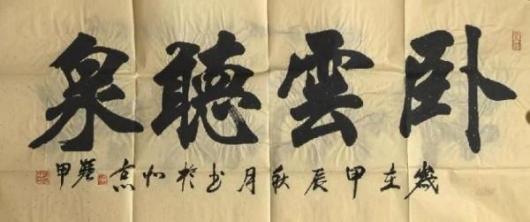 卧雲聽泉
歲在甲辰秋月書於北京